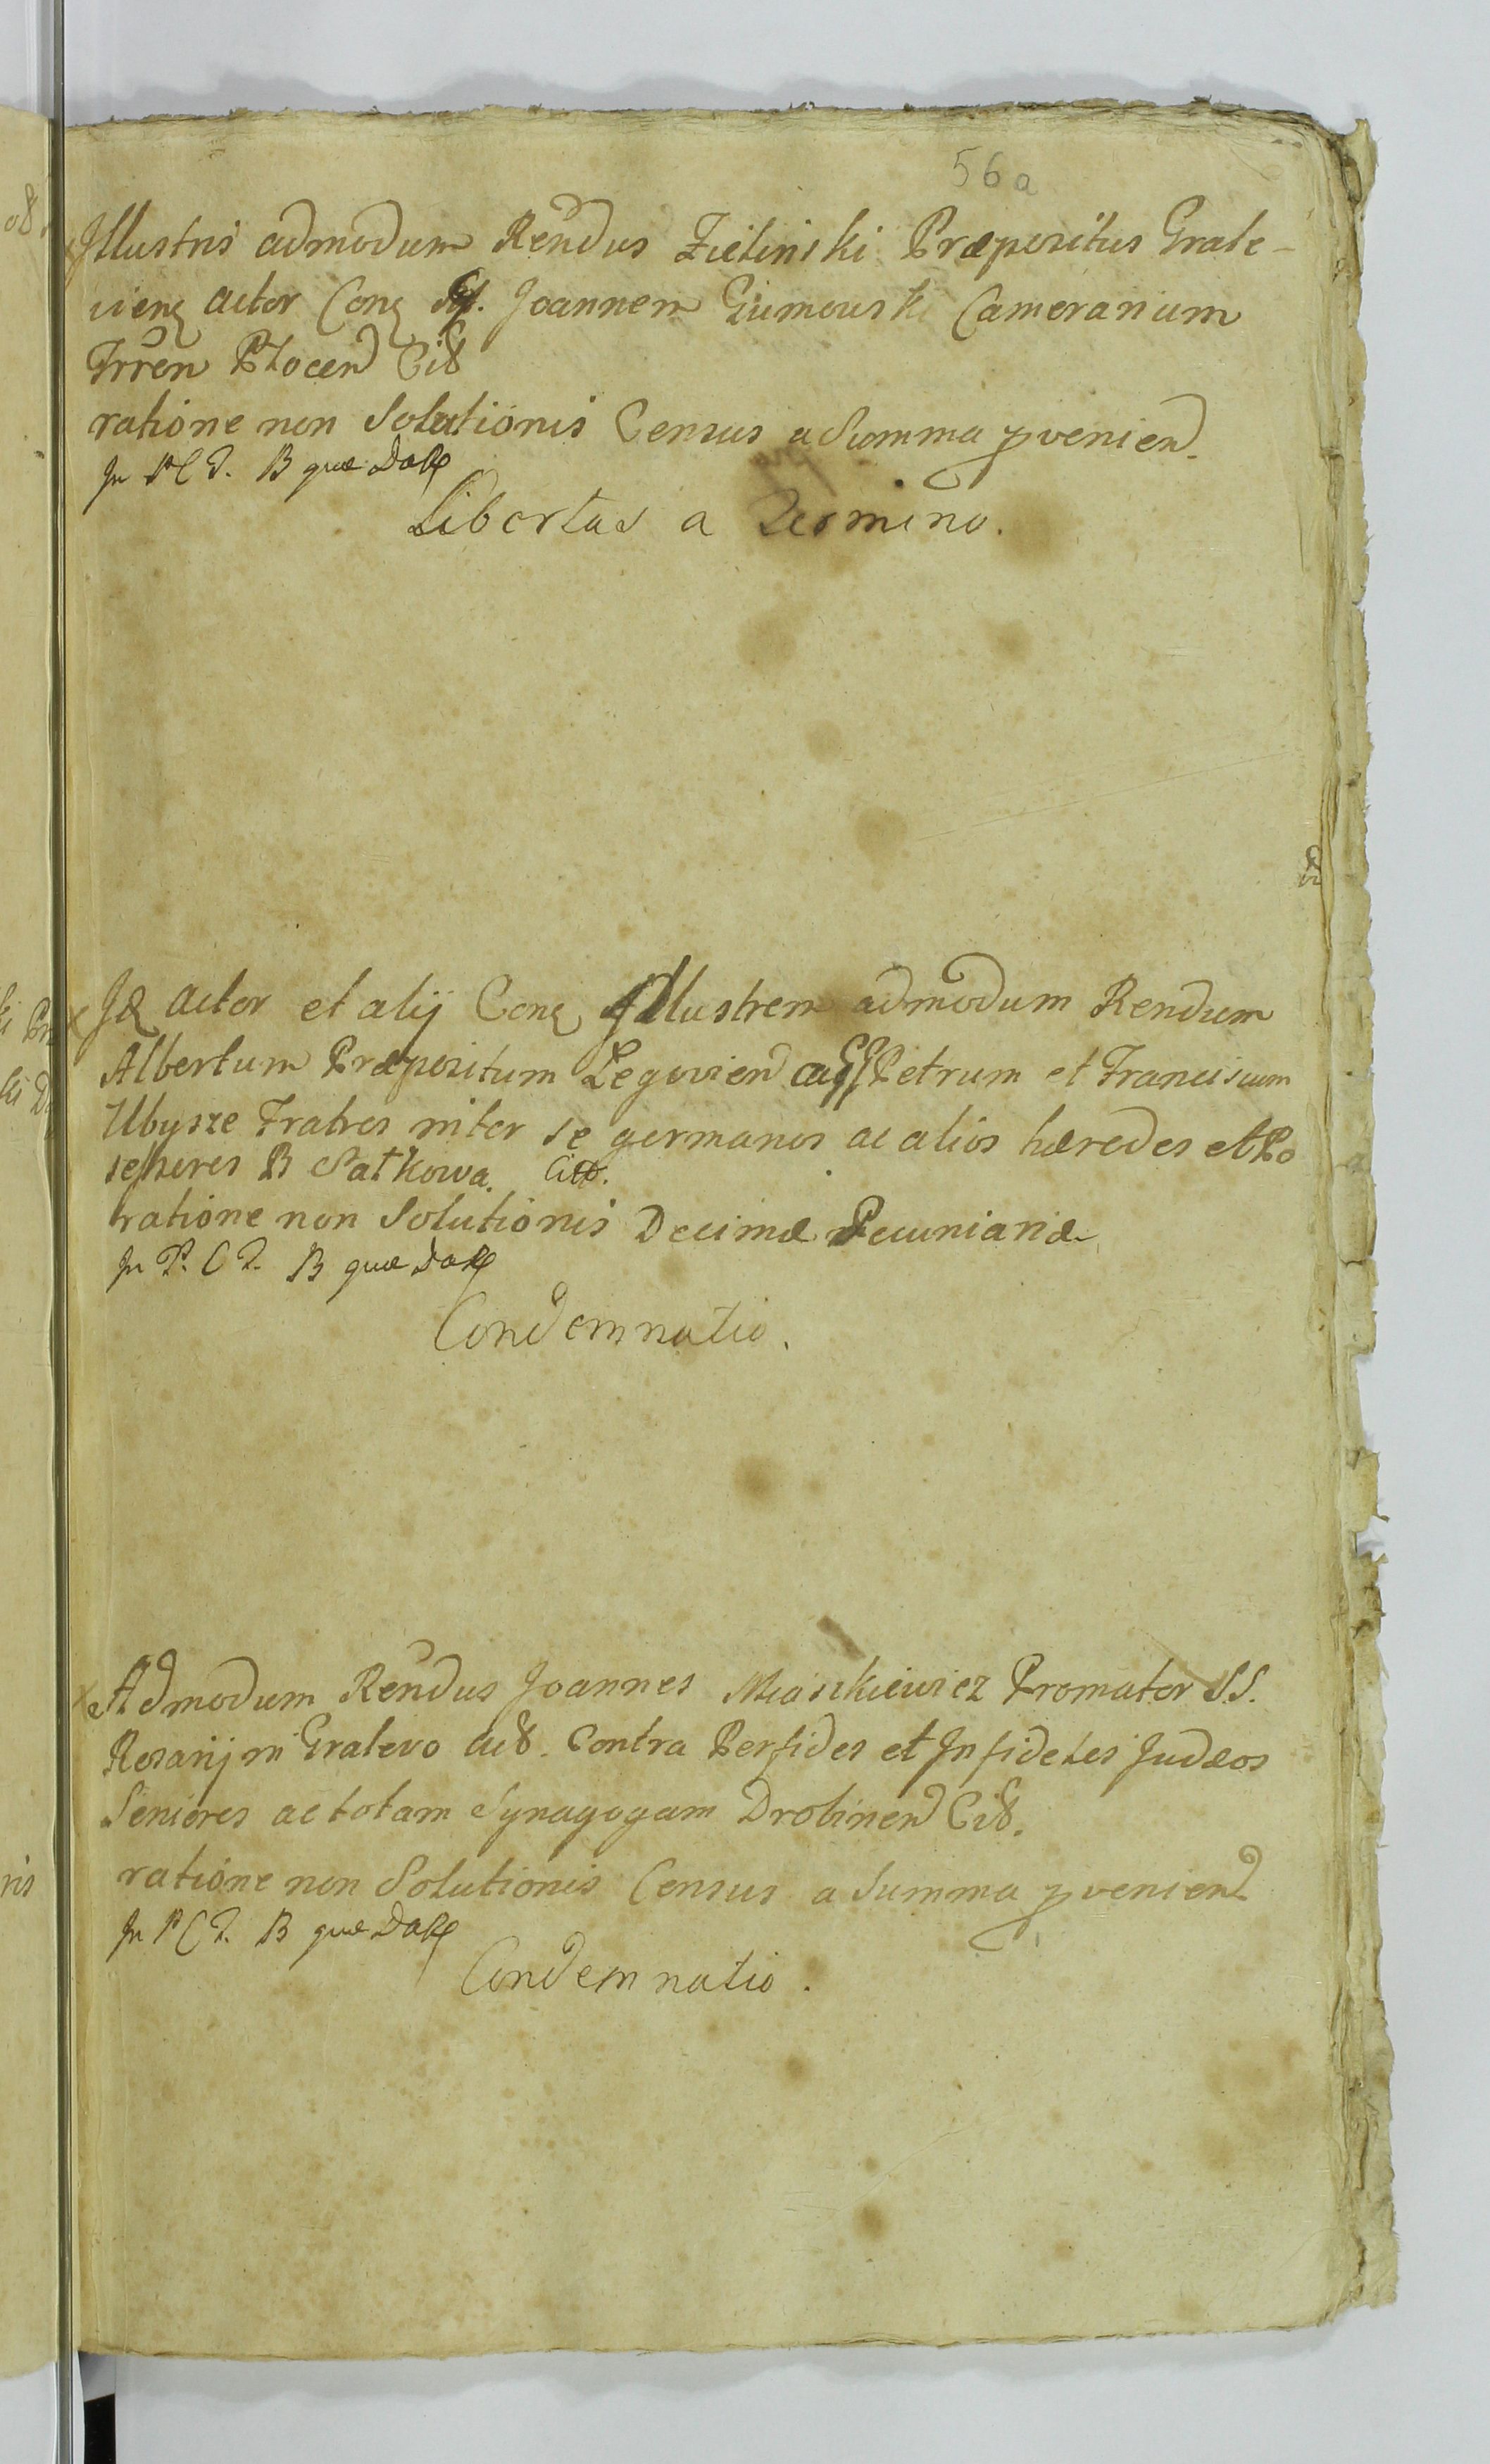 56a
Illustris admodum Rendus Zielinski Præpositus Grale-
vien actor Con Joannem Giumowski Cameranium
Trren Plocen Cit
ratione non Solutionis Census a Summa pvenien
In P C T. B quæ Dat
Libertas a Termino.
Id actor et alij Con Illustrem admodum Rendum
Albertum Præpositum Legovien Petrum et Franciscum
Ubysze Fratres inter se germanos ac alios hæredes et Po
sessores B Satkowa. Cit.
ratione non Solutionis Decimæ Pecuniariæ
In P. C T. B quæ Dat
Condemnatio.
Admodum Rendus Joannes Miaskiewicz Promotor S.S.
Rosarij in Gralevo act. Contra Perfides et Infideles Judæos
Seniores ac totam Synagogam Drobinen Cit.
ratione non Solutionis Census a Summa pvenien
In P C T. B quæ Dat
Condemnatio.